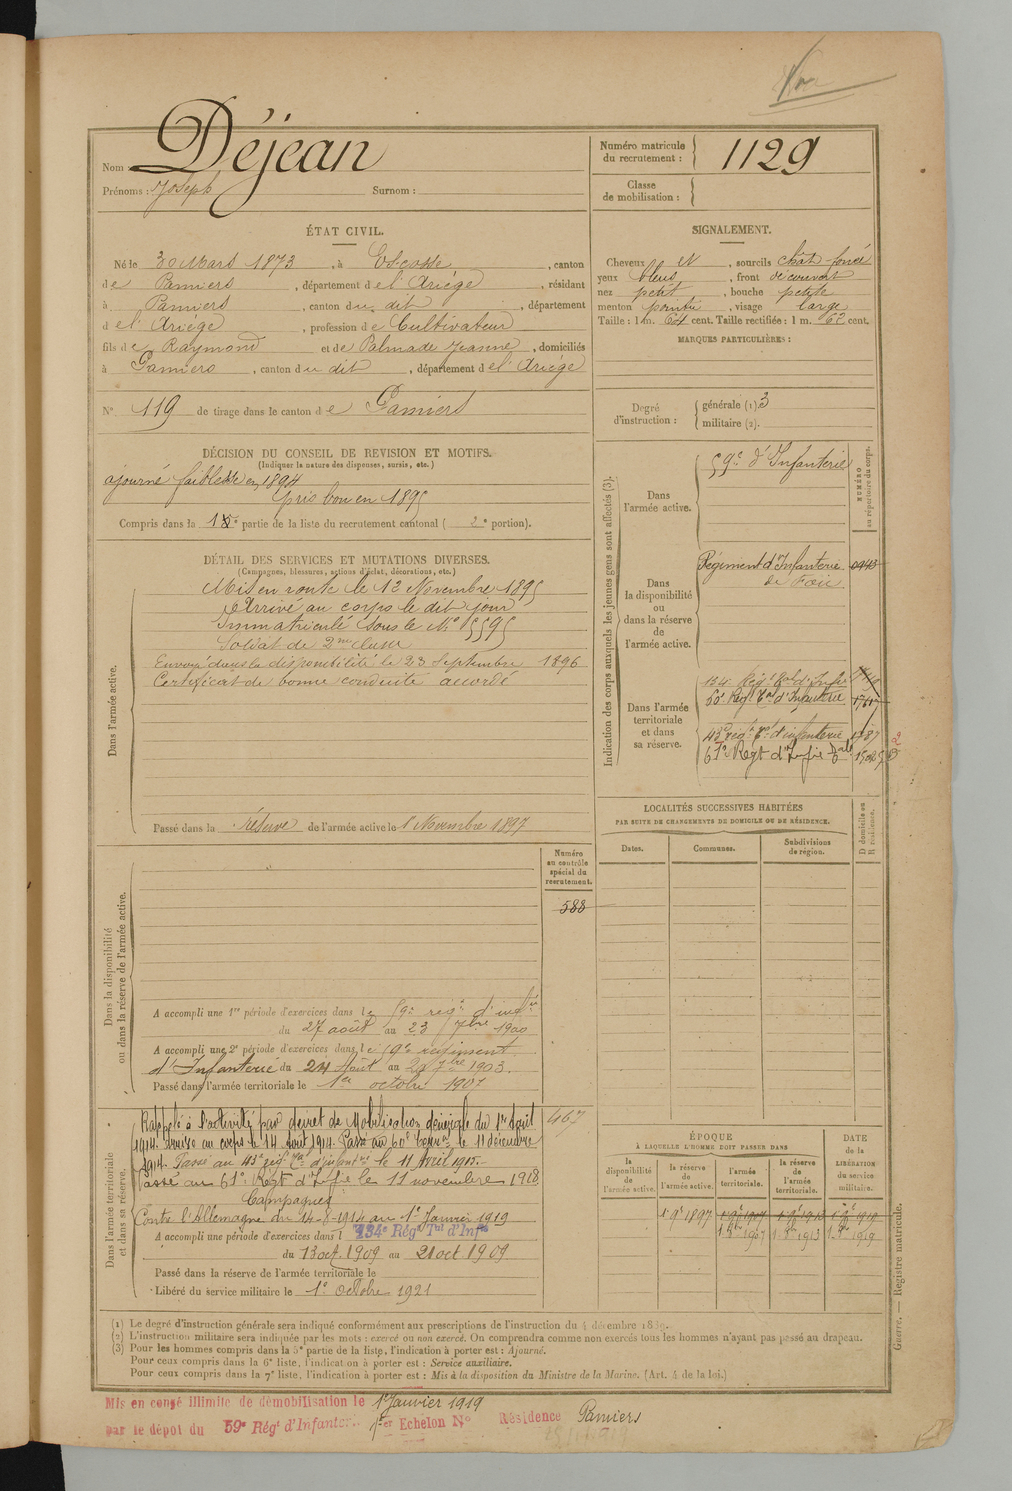 Nom : Déjean
Prénoms : Joseph Surnom :
Numéro matricule du recrutement : 1129
Classe de mobilisation :
ÉTAT CIVIL.
Né le 30 Mars 1873, à Escosse, canton
de Pamiers, département de l'Ariège, résidant
à Pamiers, canton du dit, département
de l'Ariége, profession de Cultivateur
fils de Raymond et de Palmade Jeanne, domiciliés
à Pamiers, canton du dit, département de l'Ariége
N° 119 de tirage dans le canton de Pamiers
SIGNALEMENT.
Cheveux et, sourcils chât-foncé
yeux bleus, front découvert
nez petit, bouche petite
menton pointu, visage large
Taille : 1 m. 64 cent. Taille rectifiée : 1 m. 67 cent.
MARQUES PARTICULIÈRES :
Degré d'instruction : générale (1) 3
militaire (2).
DÉCISION DU CONSEIL DE REVISION ET MOTIFS.
(Indiquer la nature des dispenses, sursis, etc.)
ajourné faiblesse en 1894
pris bon en 1895
Compris dans la 1e partie de la liste du recrutement cantonal ( 2e portion).
DÉTAIL DES SERVICES ET MUTATIONS DIVERSES.
(Campagnes, blessures, actions d'éclat, décorations, etc.)
Dans l'armée active.
Mis en route le 12 Novembre 1895
Arrivé au corps le dit jour
Immatriculé sous le N° 5595
Soldat de 2me classe
Envoyé dans la disponibilité le 23 Septembre 1896
Certificat de bonne conduite accordé
Passé dans la réserve de l'armée active le 1 Novembre 1897
Indication des corps auxquels les jeunes gens sont affectés (3).
NUMÉRO au répertoire du corps.
Dans l'armée active.
59e d'Infanterie
Dans la disponibilité ou dans la réserve de l'armée active.
Régiment d'Infanterie
de Foix
Dans l'armée territoriale et dans sa réserve.
134e Régt Tal d'Infie
60e Régt Tal d'Infanterie
43e régt Tal d'infanterie
61e Régt d'Infie Tale
LOCALITÉS SUCCESSIVES HABITÉES
PAR SUITE DE CHANGEMENTS DE DOMICILE OU DE RÉSIDENCE.
Dates. Communes. Subdivisions de région. D domicile ou R résidence.
Numéro au contrôle spécial du recrutement.
588
Dans la disponibilité ou dans la réserve de l'armée active.
A accompli une 1re période d'exercices dans le 59e régt d'infie
du 27 août au 23 7bre 1900
A accompli une 2e période d'exercices dans le 59e régiment
d'Infanterie du 24 Août au 20 7bre 1903.
Passé dans l'armée territoriale le 1er octobre 1907
Dans l'armée territoriale et dans sa réserve.
467
Rappelé à l'activité par décret de Mobilisation générale du 1er Août
1914. Arrivé au corps le 14 août 1914. Passé au 60e le 11 décembre
1914. Passé au 43e rég. Tal d'infanterie le 11 Avril 1915.
Passé au 61e Régt d'Infie le 11 novembre 1918
Campagnes
Contre l'Allemagne du 14-8-1914 au 1er Janvier 1919
A accompli une période d'exercices dans l 134e Régt Tal d'Infie
du 13 oct. 1909 au 21 oct 1909
Passé dans la réserve de l'armée territoriale le
Libéré du service militaire le 1er Octobre 1921
ÉPOQUE
À LAQUELLE L'HOMME DOIT PASSER DANS
DATE de la LIBÉRATION du service militaire.
la disponibilité de l'armée active. la réserve de l'armée active. l'armée territoriale. la réserve de l'armée territoriale.
1 9e 1897 1 9e 1907 1 9e 1913 1 9e 1919
1 8re 1907 1 8re 1913 1 8re 1919
(1) Le degré d'instruction générale sera indiqué conformément aux prescriptions de l'instruction du 4 décembre 1889.
(2) L'instruction militaire sera indiquée par les mots : exercé ou non exercé. On comprendra comme non exercés tous les hommes n'ayant pas passé au drapeau.
(3) Pour les hommes compris dans la 5e partie de la liste, l'indication à porter est : Ajourné.
Pour ceux compris dans la 6e liste, l'indication à porter est : Service auxiliaire.
Pour ceux compris dans la 7e liste, l'indication à porter est : Mis à la disposition du Ministre de la Marine. (Art. 4 de la loi.)
Guerre. — Registre matricule.
Mis en congé illimité de démobilisation le 1er Janvier 1919
par le dépot du 59e Régt d'Infanterie 1er Echelon N° Résidence Pamiers